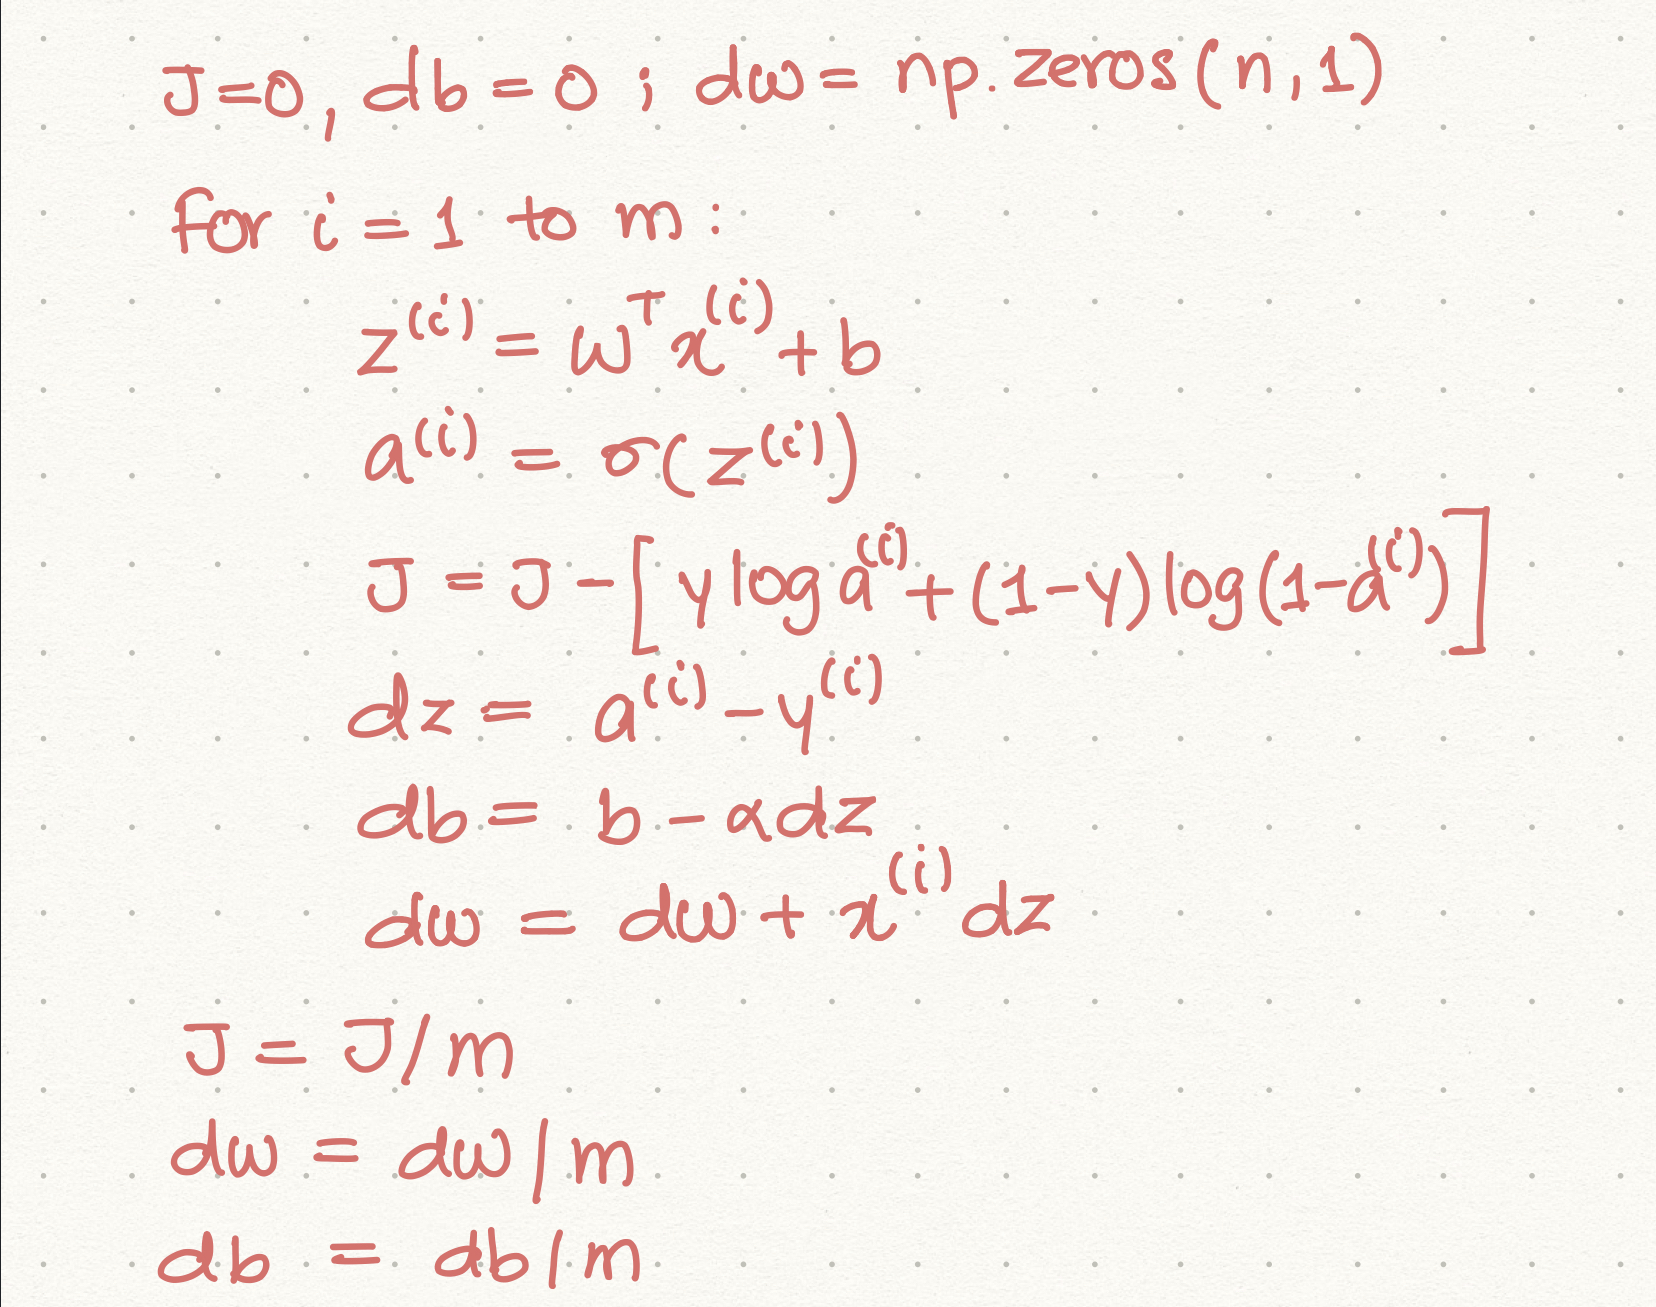 J=0, db=0; dw= np.zeros(n,1)
for i=1 to m:
z^(i) = w^T x^(i) + b
a^(i) = σ(z^(i))
J = J - [y log a^(i) + (1-y) log(1-a^(i))]
dz = a^(i) - y^(i)
db = b - αdz
dw = dw + x^(i) dz
J = J/m
dw = dw/m
db = db/m